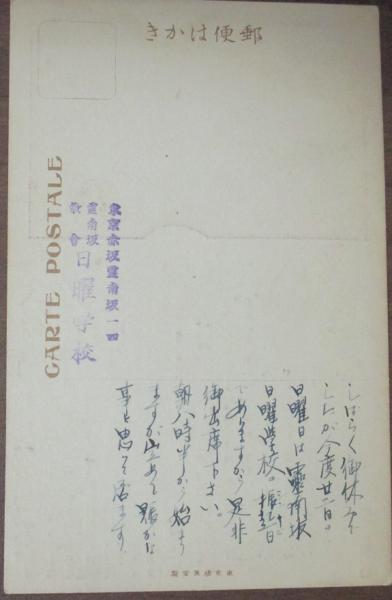 郵便はかき
CARTE POSTALE
東京赤坂霊南坂一四
霊南坂
教会
日曜学校
しばらく御休みで
したが今度廿一日の
日曜日は靈南坂
日曜学校の
でありますから是非
御出席下さい。
朝八時半から始まり
ますが
事と思って居ます